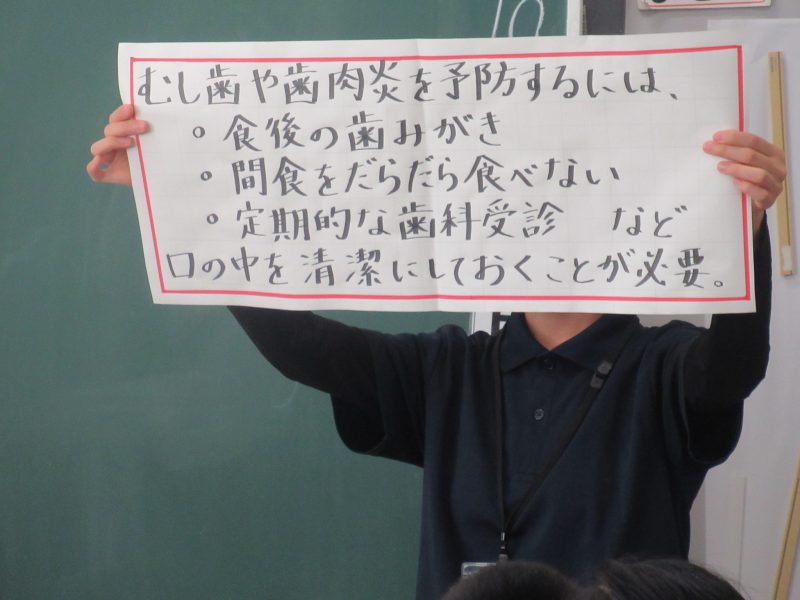 むし歯や歯肉炎を予防するには、
。食後の歯みがき
。間食をだらだら食べない
。定期的な歯科受診　など
口の中を清潔にしておくことが必要。